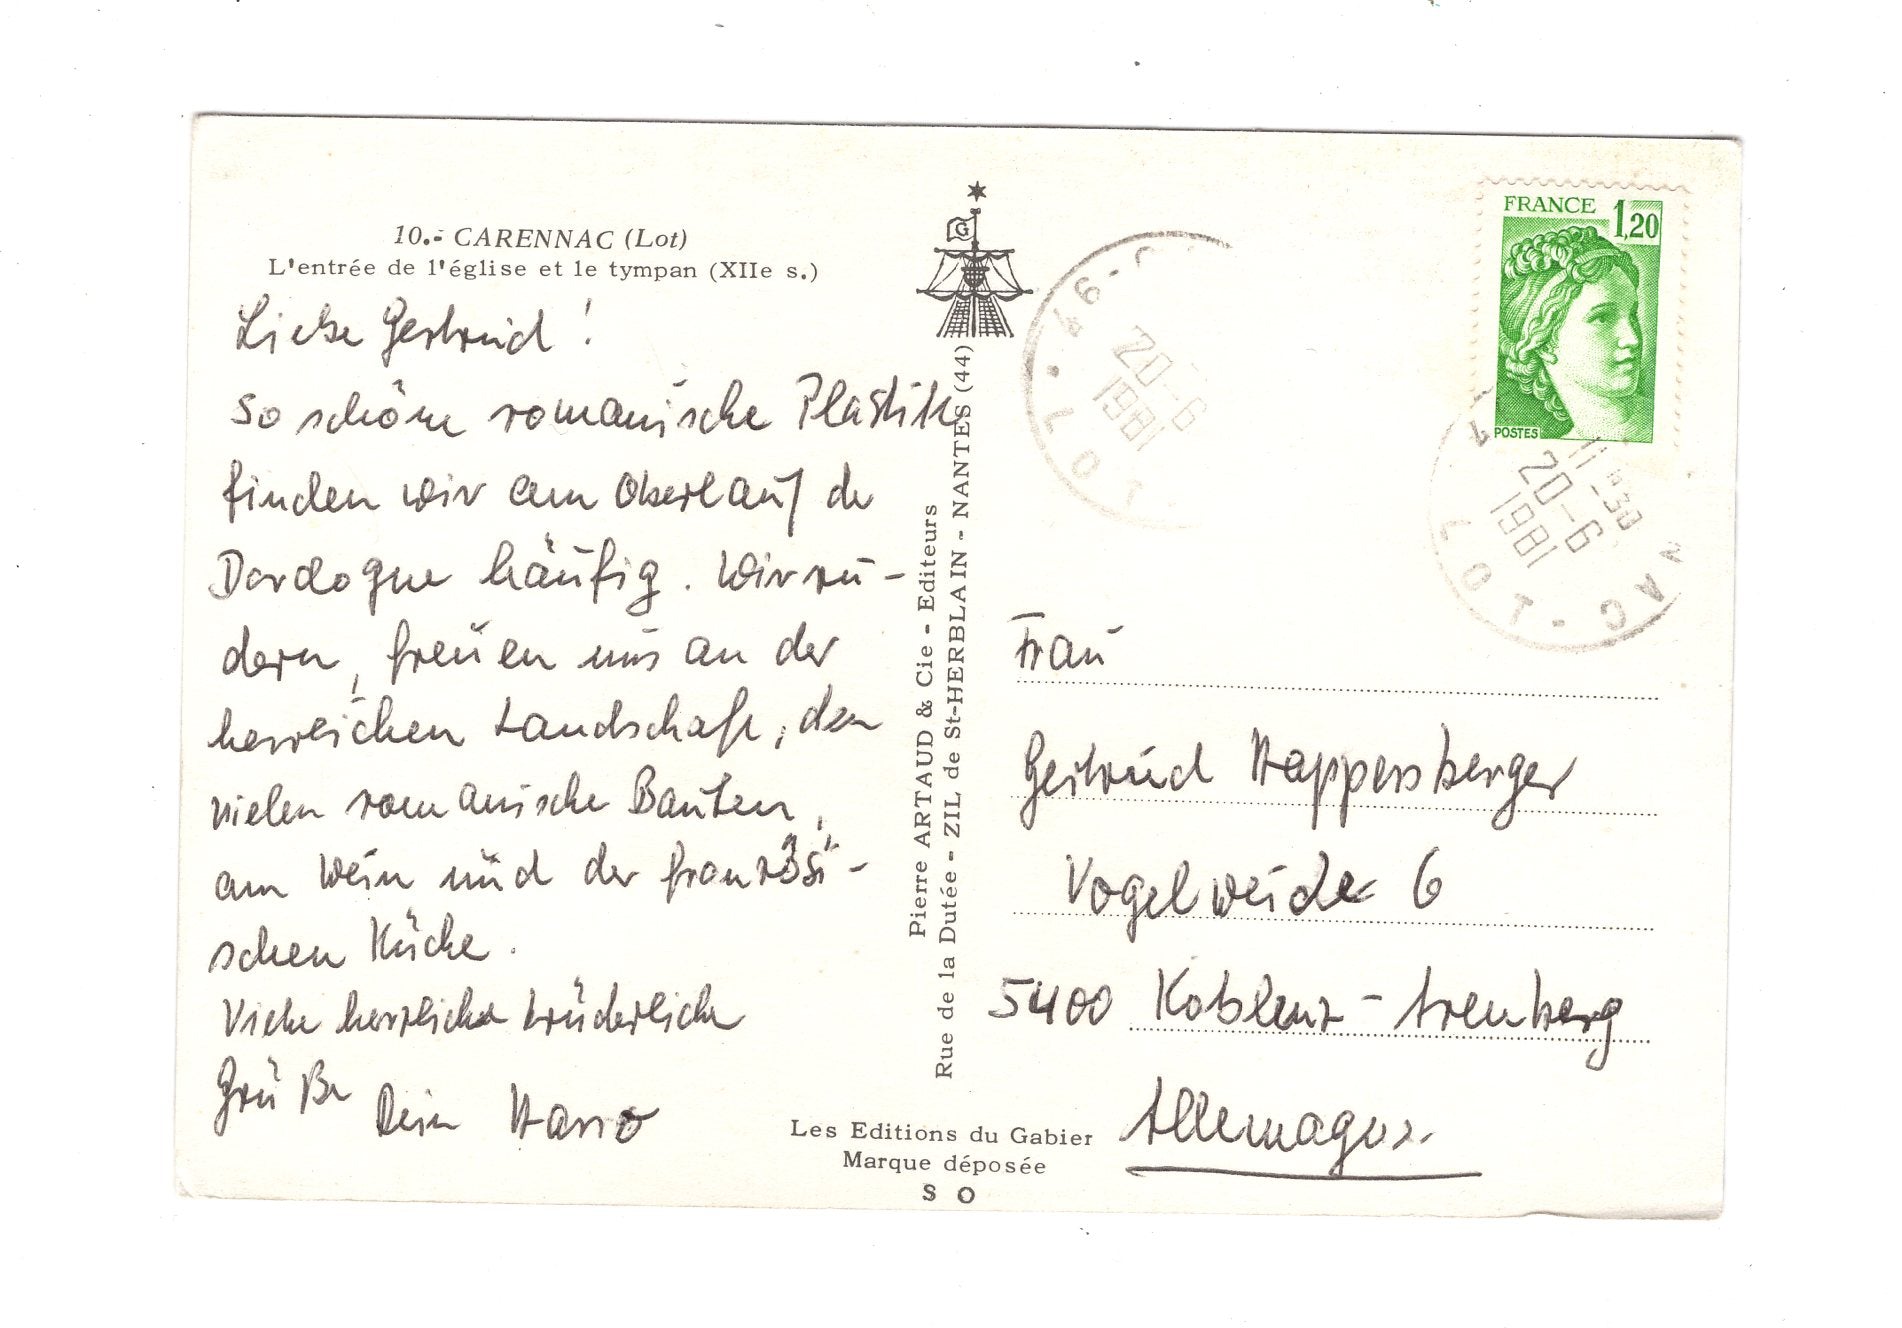 10.- CARENNAC (Lot)
L'entrée de l'église et le tympan (XIIe s.)
Liebe Gertrud!
So schöne romanische Plastik
finden wir am Oberlauf der
Dordogne häufig. Wir ru-
dern, freuen uns an der
herrlichen Landschaft, den
vielen romanische Bauten,
am Wein und der französi-
schen Küche.
Viele herzliche brüderliche
Grüße Dein Hanno
Pierre ARTAUD & Cie - Editeurs
Rue de la Dutée - ZIL de St-HERBLAIN - NANTES (44)
G
Les Editions du Gabier
Marque déposée
S O
FRANCE 1,20
POSTES
46-C
20-6
1981
LOT
11h30
20-6
1981
NAC
LOT
Frau
Gertrud Happersberger
Vogelweide 6
5400 Koblenz-Arenberg
Allemagne